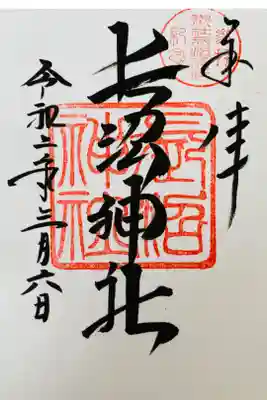 奉拝
長沼神社
長沼神社
令和二年三月六日